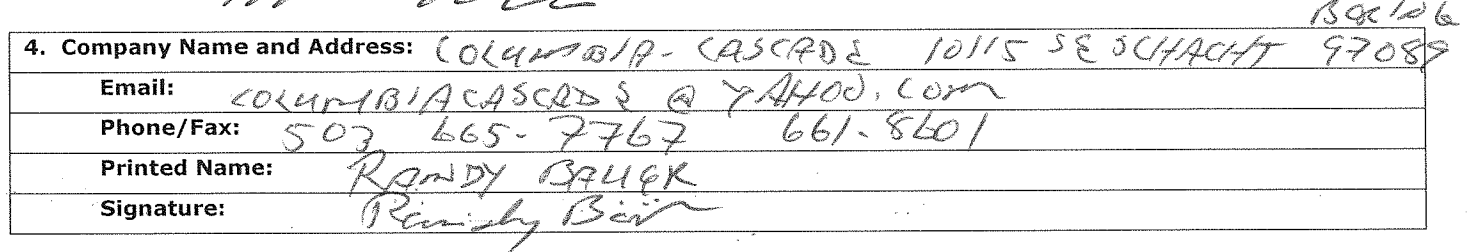 4. Company Name and Address: COLUMBIA-CASCADE 10115 SE SCHACHT 97089
Email: COLUMBIACASCADE @ YAHOO.COM
Phone/Fax: 503 665-7767 661-8601
Printed Name: RANDY BAUER
Signature: Randy